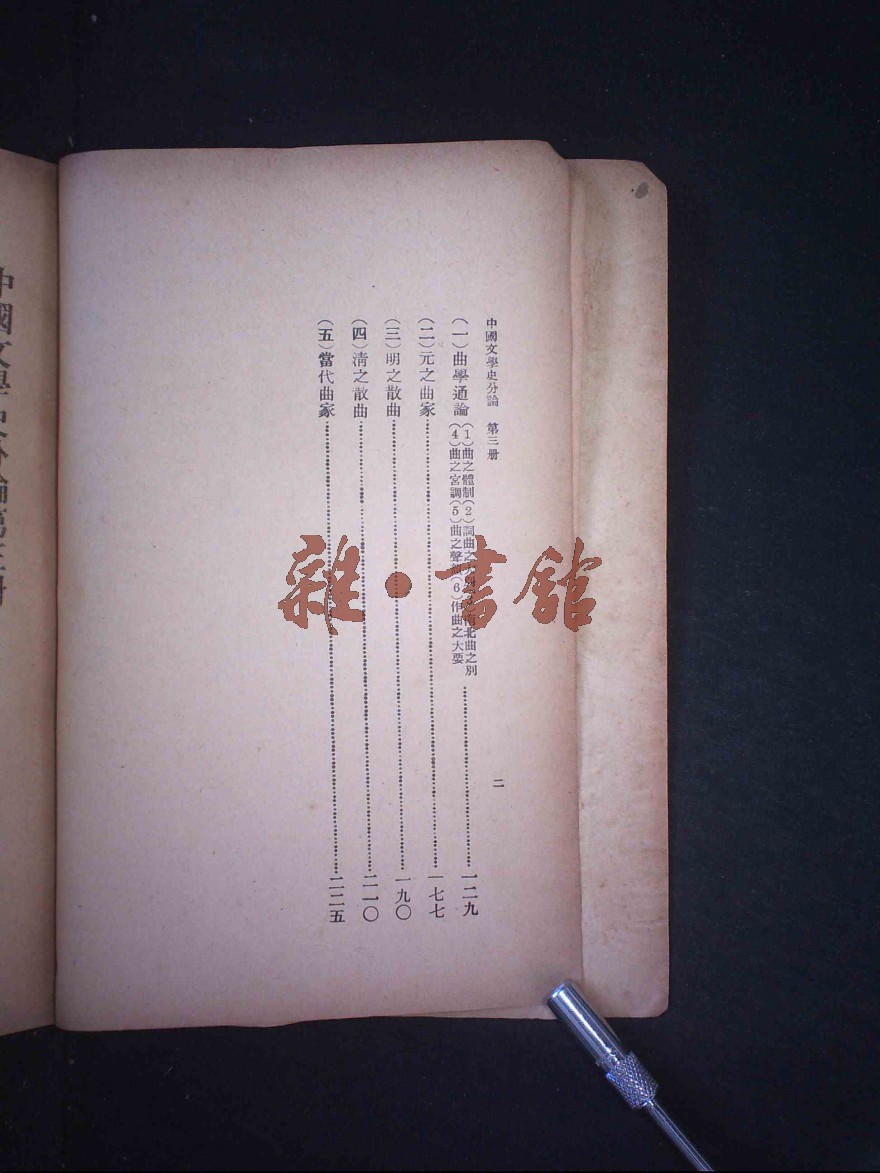 中國文學史分論　第三册
二
(一)曲學通論 (1)曲之體制(2)詞曲之 南北曲之別
(4)曲之宮調(5)曲之聲 (6)作曲之大要……一二九
(二)元之曲家……一七七
(三)明之散曲……一九〇
(四)清之散曲……二一〇
(五)當代曲家……二二五
中國文學史分論第三册
雜·書館